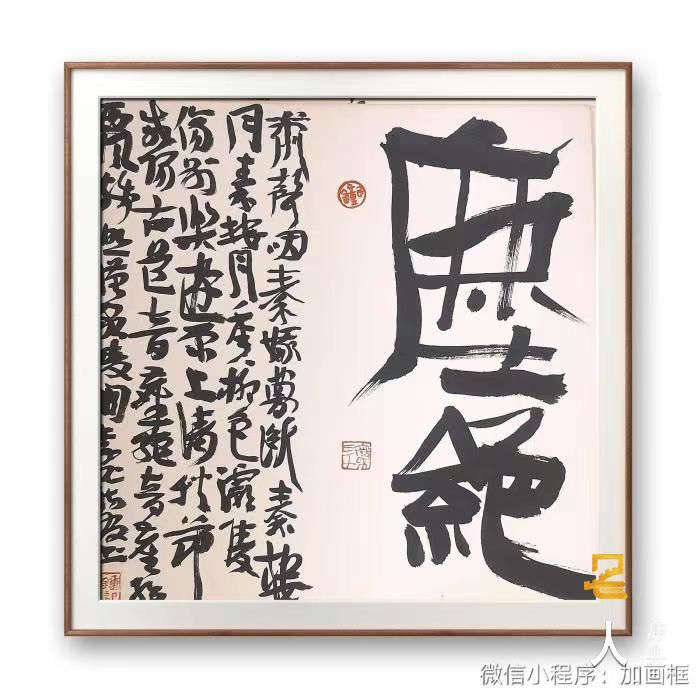 塵絕
簫聲咽秦娥夢斷秦樓
月秦樓月年〻柳色灞陵
傷別樂遊原上清秋節
咸陽古道音塵絕音塵絕
西風殘照漢家陵闕
人
微信小程序：加画框